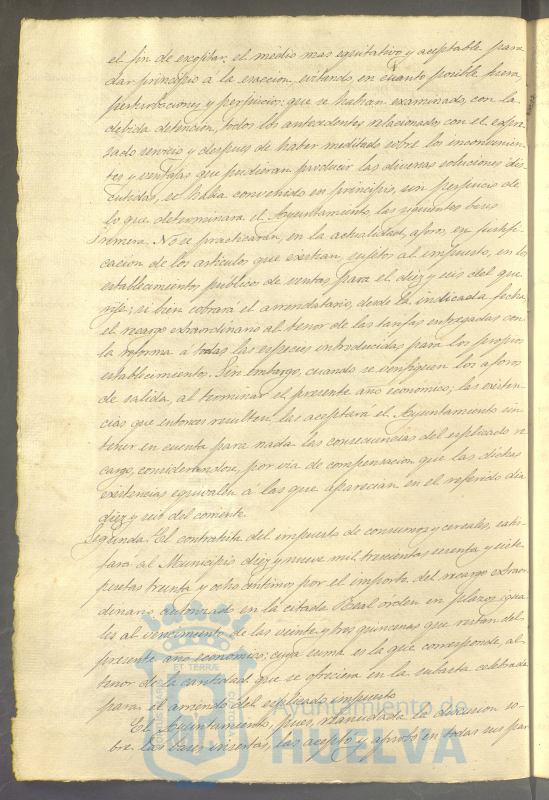 el fin de excogitar, el medio mas equitativo y aceptable para
dar principio á la exaccion, evitando, en cuanto posible fuera,
perturbaciones y perjuicios: que se habian examinado, con la
debida detencion, todos los antecedentes relacionados con el espre-
sado servicio y despues de haber meditado sobre los inconvenien-
tes y ventajas que pudieran producir las diversas soluciones dis-
cutidas, se habia convenido en principio, sin perjuicio de
lo que determinara el Ayuntamiento, las siguientes bases
Primera. No se practicarán, en la actualidad, aforos, en justifi-
cacion de los articulos que existian, sujetos al impuesto, en los
establecimientos publicos de ventas para el diez y seis del que
rije; si bien cobrará el arrendatario, desde la indicada fecha,
el recargo extraordinario al tenor de las tarifas entregadas con
la reforma á todas las especies introducidas para los propios
establecimientos. Sin embargo, cuando se verifiquen los aforos
de salida, al terminar el presente año económico; las existen-
cias que entonces resulten las aceptará el Ayuntamiento sin
tener en cuenta para nada las consecuencias del esplicado re
cargo, considerandose, por via de compensacion que las dichas
existencias equivalen á las que aparecian en el referido dia
diez y seis del corriente.
Segunda. El contratista del impuesto de consumos y cereales, satis-
fará al Municipio diez y nueve mil trescientas sesenta y siete
pesetas treinta y ocho centimos por el importe del recargo extraor
dinario autorizado en la citada Real órden en plazos igua
les al vencimiento de las veinte y tres quincenas que restan del
presente año económico; cuya suma es la que corresponde, al
tenor de la cantidad que se ofreciera en la subasta celebrada
para el arriendo del esplicado impuesto
El Ayuntamiento, pues, reanudada la discusion so-
bre las bases insertas, las aceptó y aprobó en todas sus par
Ayuntamiento de
HUELVA